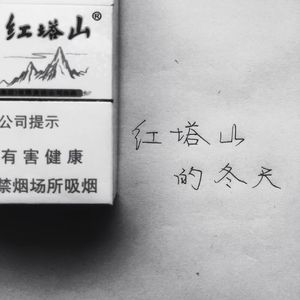 红塔山®
公司提示
有害健康
禁烟场所吸烟
红塔山
的冬天